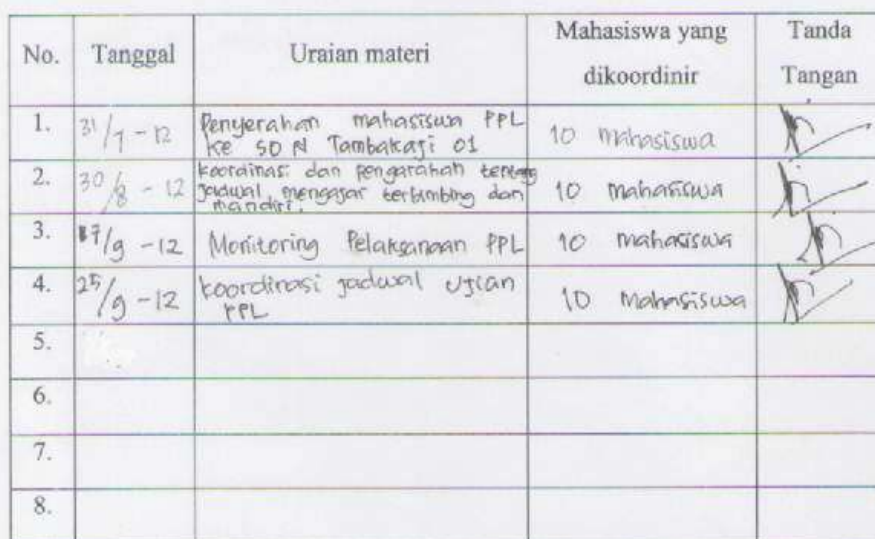 No. Tanggal Uraian materi Mahasiswa yang dikoordinir Tanda Tangan
1. 31/7 - 12 Penyerahan mahasiswa PPL
ke SD N Tambakaji 01 10 mahasiswa
2. 30/8 - 12 koordinasi dan pengarahan tentang
jadwal mengajar terbimbing dan
mandiri. 10 mahasiswa
3. 17/9 - 12 Monitoring Pelaksanaan PPL 10 mahasiswa
4. 25/9 - 12 koordinasi jadwal Ujian
PPL 10 Mahasiswa
5.
6.
7.
8.